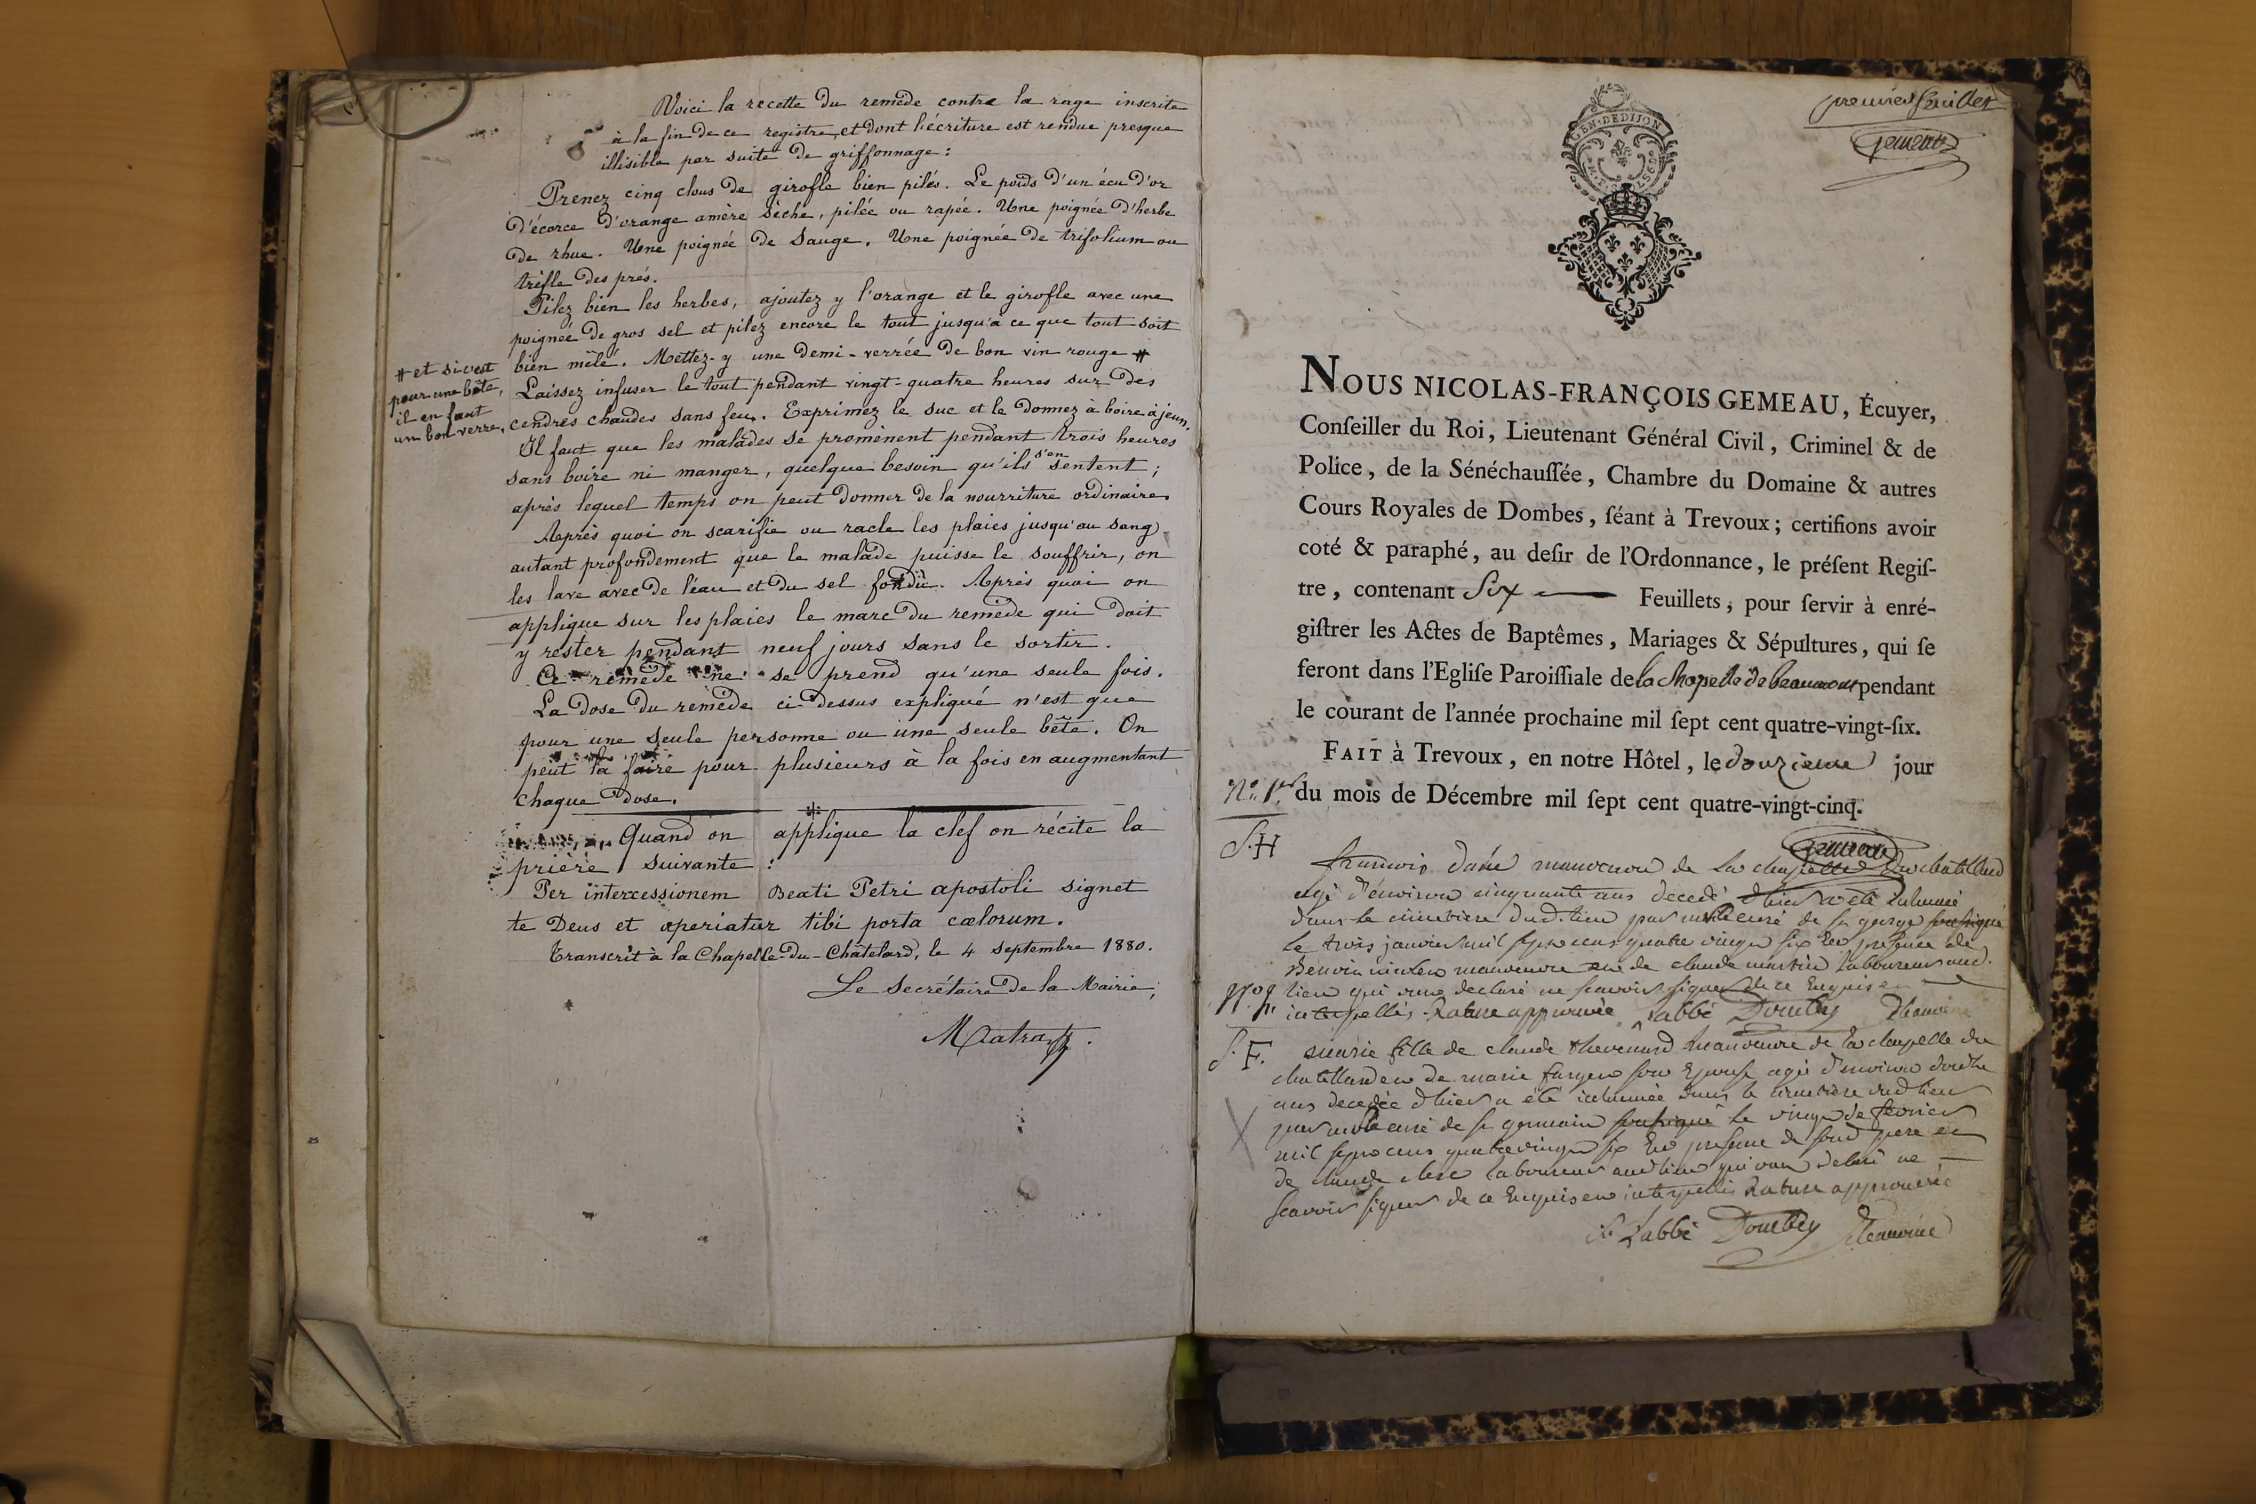 Voici la recette du remède contre la rage inscrite
à la fin de ce registre, et dont l'écriture est rendue presque
illisible par suite de griffonnage :
Prenez cinq clous de girofle bien pilés. Le poids d'un écu d'or
d'écorce d'orange amère sèche, pilée ou rapée. Une poignée d'herbe
de rhue. Une poignée de Sauge. Une poignée de trifolium ou
trèfle des prés.
Pilez bien les herbes, ajoutez y l'orange et le girofle avec une
poignée de gros sel et pilez encore le tout jusqu'à ce que tout soit
bien mêlé. Mettez-y une demi-verrée de bon vin rouge #
# et si c'est
pour une bête,
il en faut
un bon verre.
Laissez infuser le tout pendant vingt-quatre heures sur des
cendres chaudes sans feu. Exprimez le suc et le donnez à boire à jeun.
Il faut que les malades se promènent pendant trois heures
sans boire ni manger, quelque besoin qu'ils s'en sentent ;
après lequel temps on peut donner de la nourriture ordinaire.
Après quoi on scarifie ou racle les plaies jusqu'au sang
autant profondement que le malade puisse le souffrir, on
les lave avec de l'eau et du sel fondu. Après quoi on
applique sur les plaies le marc du remède qui doit
y rester pendant neuf jours sans le sortir.
Ce remède ne se prend qu'une seule fois.
La dose du remède ci-dessus expliqué n'est que
pour une seule personne ou une seule bête. On
peut la faire pour plusieurs à la fois en augmentant
chaque dose.
Quand on applique la clef on récite la
prière suivante :
Per intercessionem Beati Petri apostoli signet
te Deus et aperiatur tibi porta cœlorum.
Transcrit à la Chapelle-du-Châtelard, le 4 septembre 1880.
Le Secrétaire de la Mairie,
premier feuillet
Gemeau
GEN. DE DIJON
NOUS NICOLAS-FRANÇOIS GEMEAU, Écuyer,
Conſeiller du Roi, Lieutenant Général Civil, Criminel & de
Police, de la Sénéchauſſée, Chambre du Domaine & autres
Cours Royales de Dombes, ſéant à Trevoux; certifions avoir
coté & paraphé, au deſir de l'Ordonnance, le préſent Regiſ-
tre, contenant Six Feuillets, pour ſervir à enré-
giſtrer les Actes de Baptêmes, Mariages & Sépultures, qui ſe
feront dans l'Egliſe Paroiſſiale de la Chapelle de beaumont pendant
le courant de l'année prochaine mil ſept cent quatre-vingt-ſix.
FAIT à Trevoux, en notre Hôtel, le douzieme jour
du mois de Décembre mil ſept cent quatre-vingt-cinq.
Gemeau
No. 1er
S. H
francois manoeuvre de la chapelle du chatellard
agé d'environ cinquante ans decedé d'hier a été inhumé
dans le cimetiere dud. lieu par curé de st george soussigné
le trois janvier mil sept cens quatre vingt six en presence de
manoeuvre et de claude martin laboureur aud.
lieu qui ont declaré ne scavoir signer de ce enquis et
interpellés. Rature approuvée L'abbé
S. F.
marie fille de claude thevenard manoeuvre de la chapelle du
chatellard et de marie son epouse agée d'environ douze
ans decedée d'hier a été inhumée dans le cimetiere dud. lieu
par curé de st germain soussigné le vingt de fevrier
mil sept cens quatre vingt six en presence de sond. pere et
de claude laboureur aud. lieu qui ont declaré ne
scavoir signer de ce enquis et interpellés Rature approuvée
L'abbé